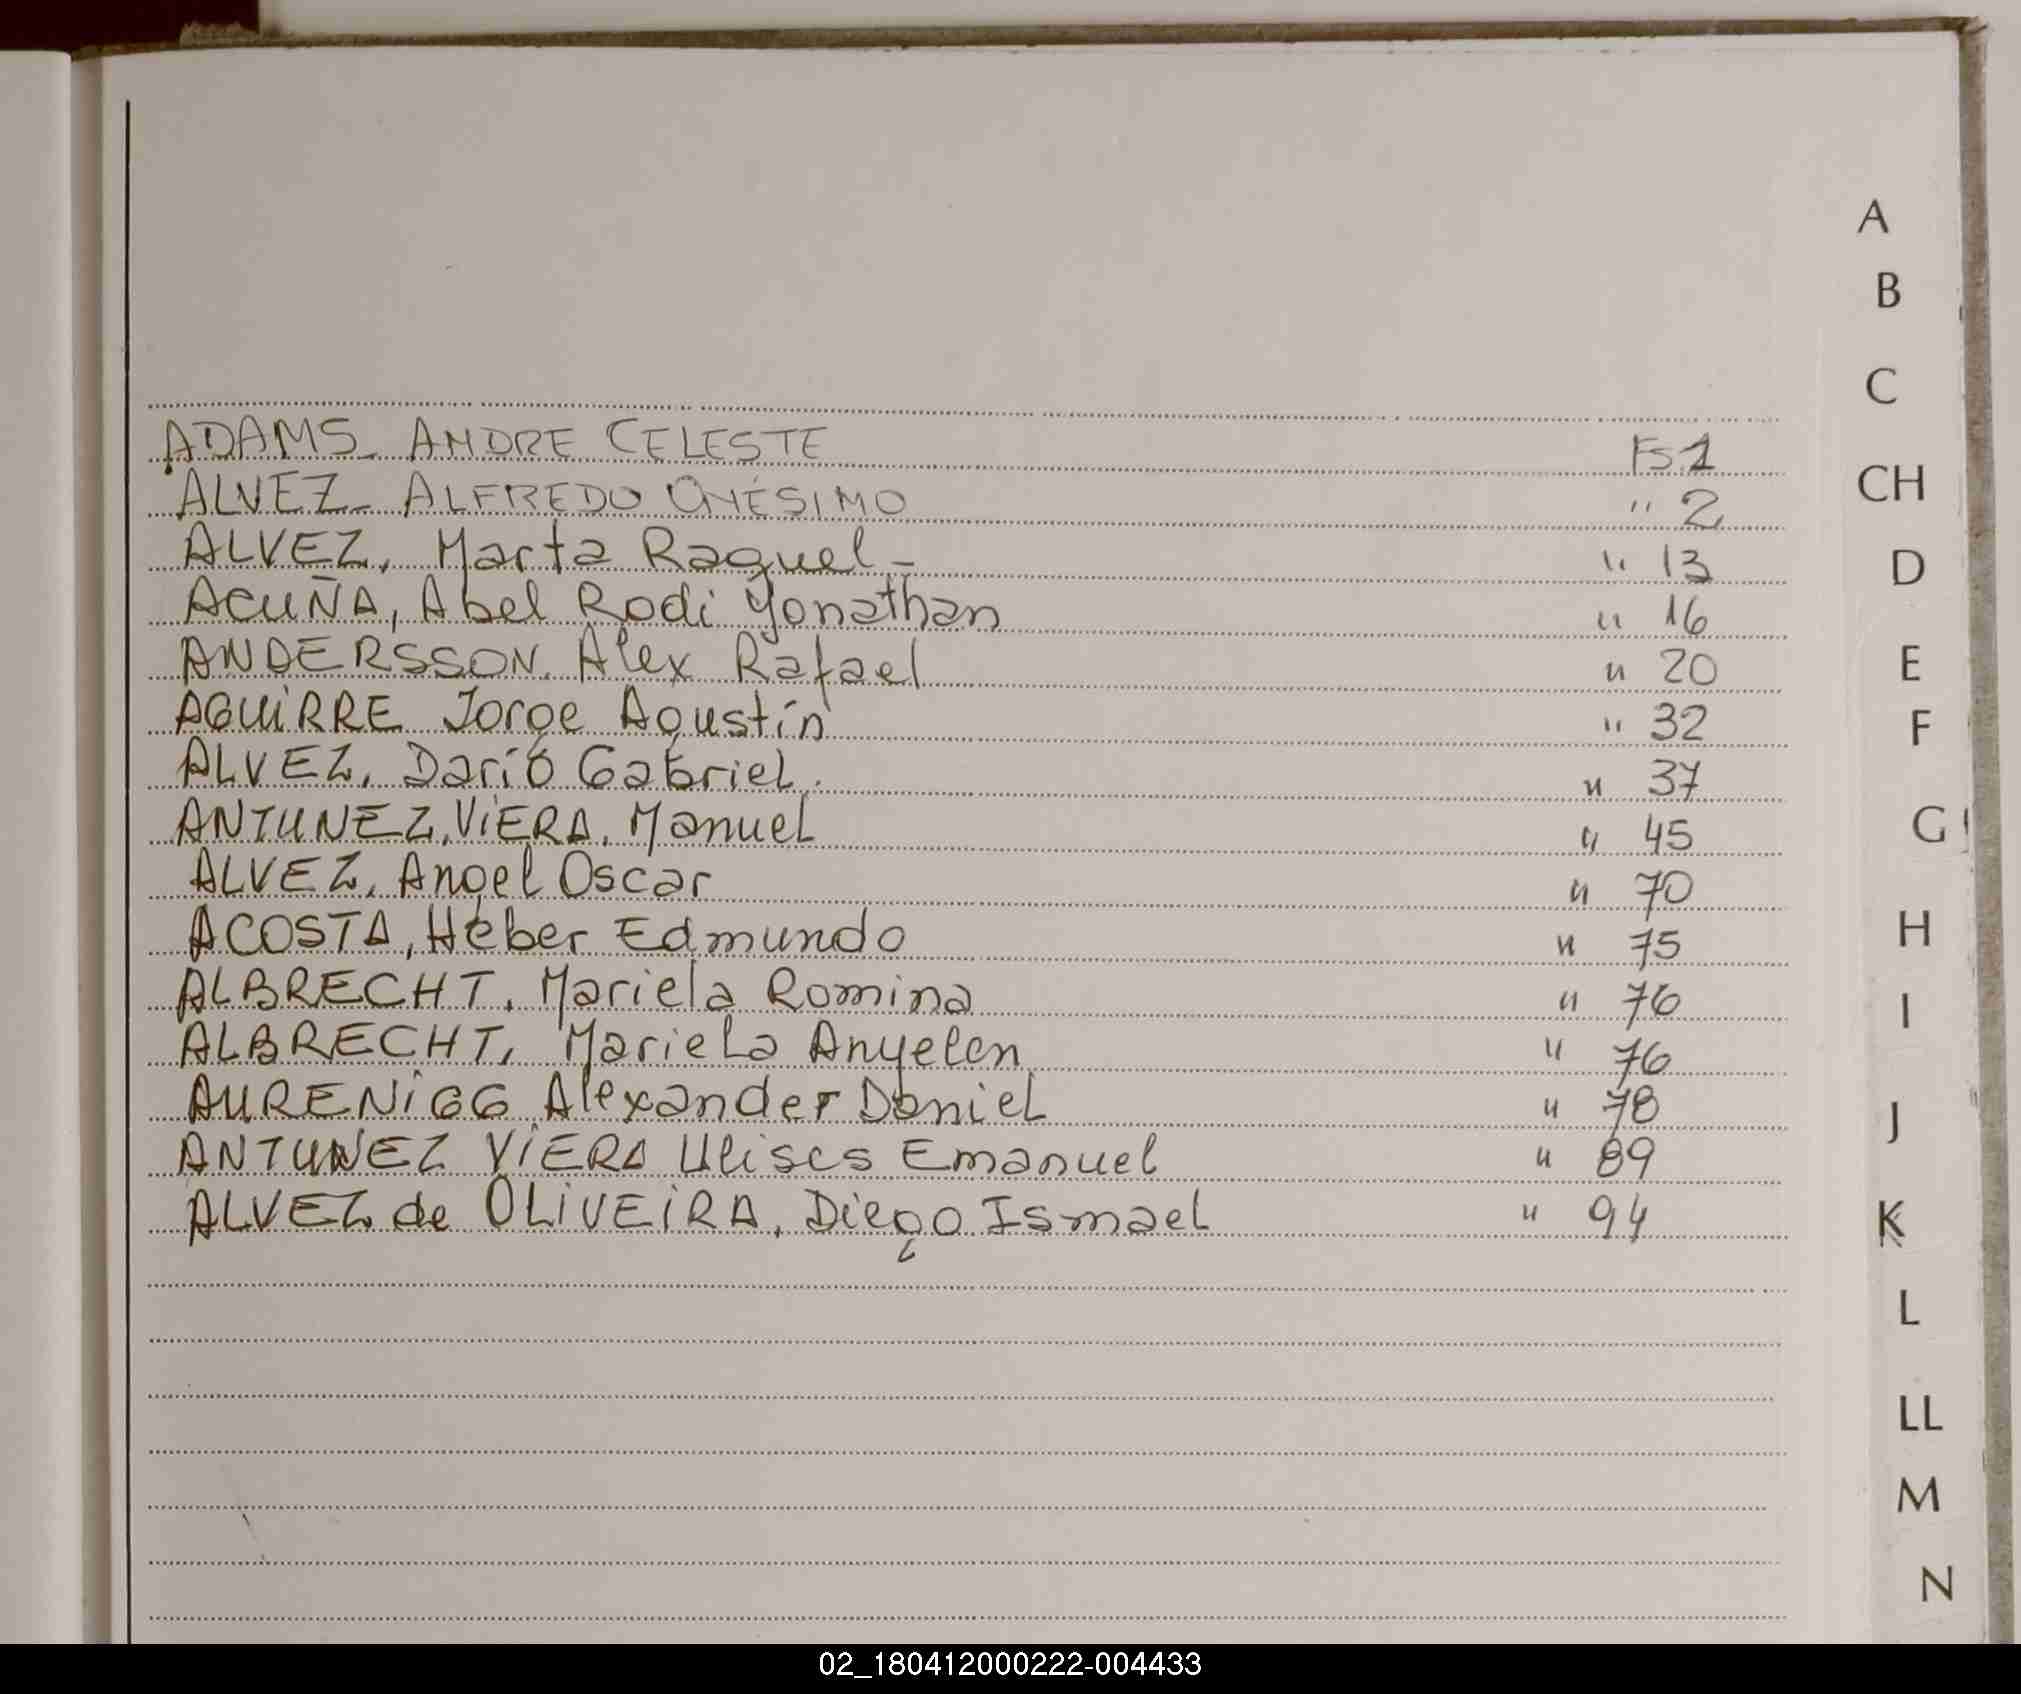 ADAMS. ANDRE CELESTE Fs. 1
ALVEZ. ALFREDO ONÉSIMO " 2
ALVEZ, Marta Raquel - " 13
ACUÑA, Abel Rodi Yonathan " 16
ANDERSSON. Alex Rafael " 20
AGUIRRE Jorge Agustín " 32
ALVEZ, Darío Gabriel. " 37
ANTUNEZ, VIERA, Manuel " 45
ALVEZ, Angel Oscar " 70
ACOSTA, Héber Edmundo " 75
ALBRECHT, Mariela Romina " 76
ALBRECHT, Mariela Anyelen " 76
AURENIGG Alexander Daniel " 78
ANTUNEZ VIERA Ulises Emanuel " 89
ALVEZ de OLIVEIRA, Diego Ismael " 94
A
B
C
CH
D
E
F
G
H
I
J
K
L
LL
M
N
02_180412000222-004433